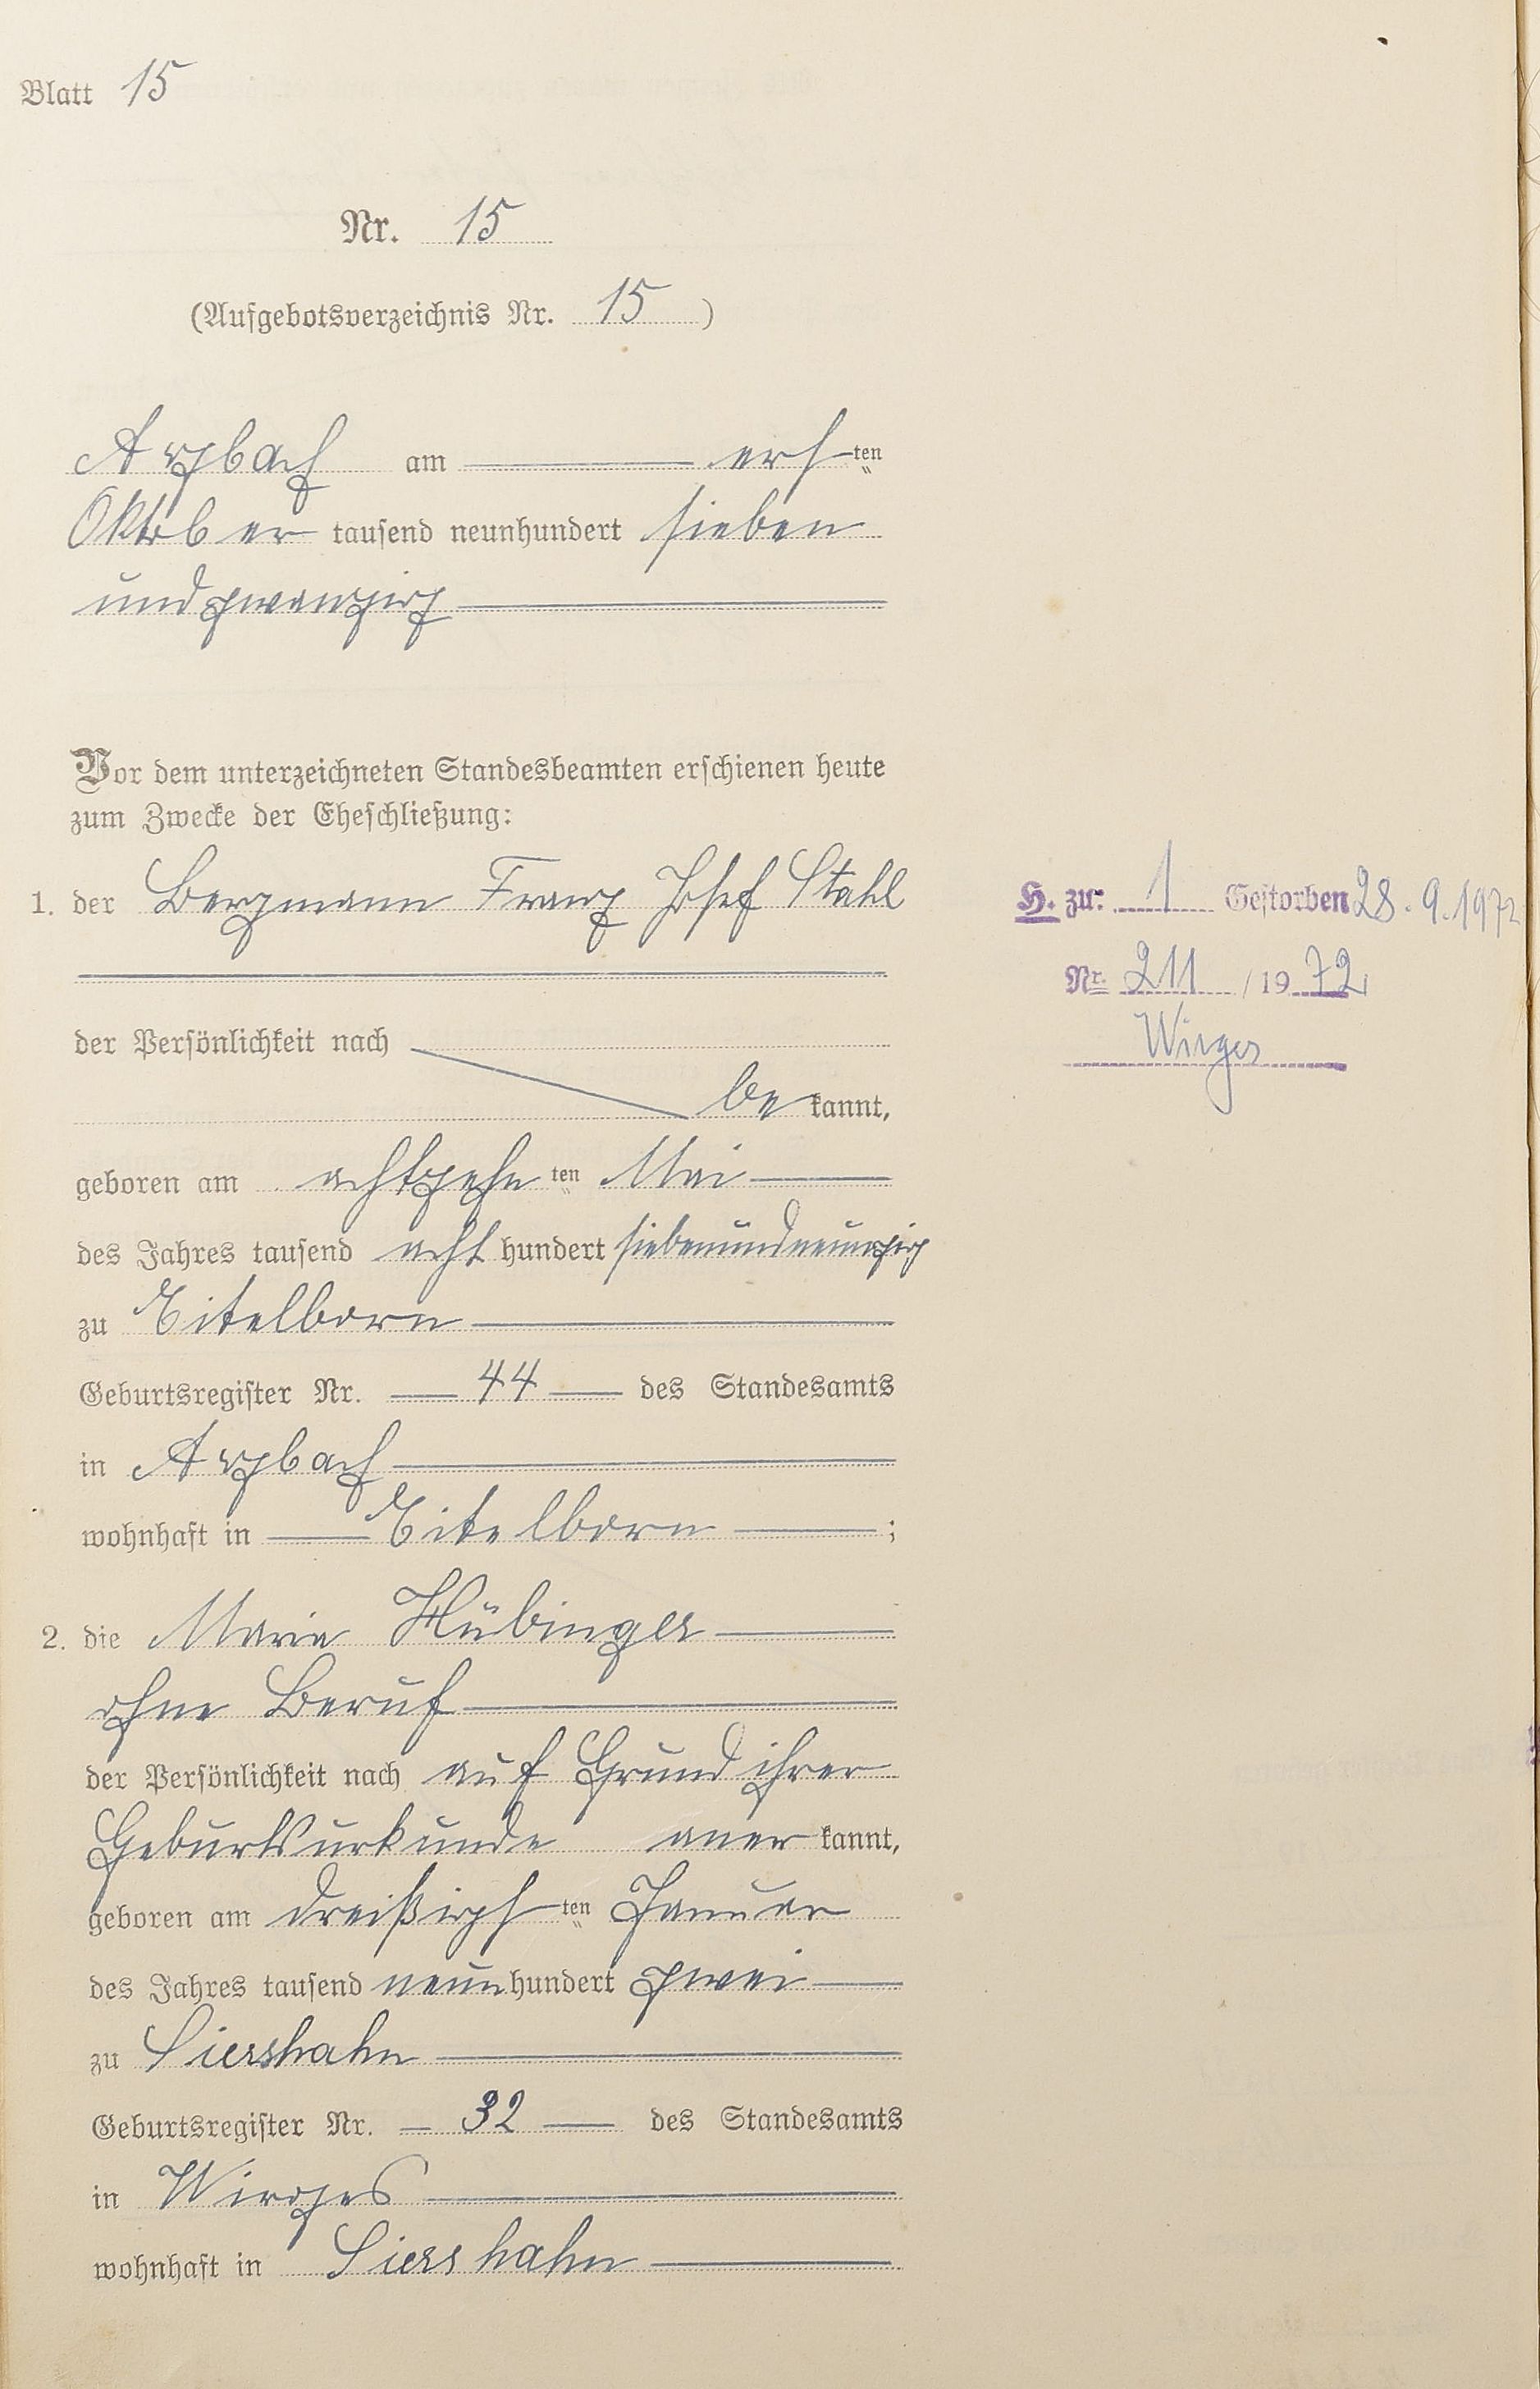 Blatt 15
Nr. 15
(Aufgebotsverzeichnis Nr. 15)
Arzbach am ersten
Oktober tausend neunhundert sieben
und zwanzig
Vor dem unterzeichneten Standesbeamten erschienen heute
zum Zwecke der Eheschließung:
1. der Bergmann Franz Josef Stahl
der Persönlichkeit nach
bekannt,
geboren am achtzehnten Mai
des Jahres tausend acht hundert siebenundneunzig
zu Eitelborn
Geburtsregister Nr. 44 des Standesamts
in Arzbach
wohnhaft in Eitelborn;
2. die Maria Hübinger
ohne Beruf
der Persönlichkeit nach auf Grund ihrer
Geburtsurkunde anerkannt,
geboren am dreißigsten Januar
des Jahres tausend neunhundert zwei
zu Siershahn
Geburtsregister Nr. 32 des Standesamts
in Wirges
wohnhaft in Siershahn
H. zu: 1 Gestorben 28.9.1972
Nr. 211 / 1972
Wirges